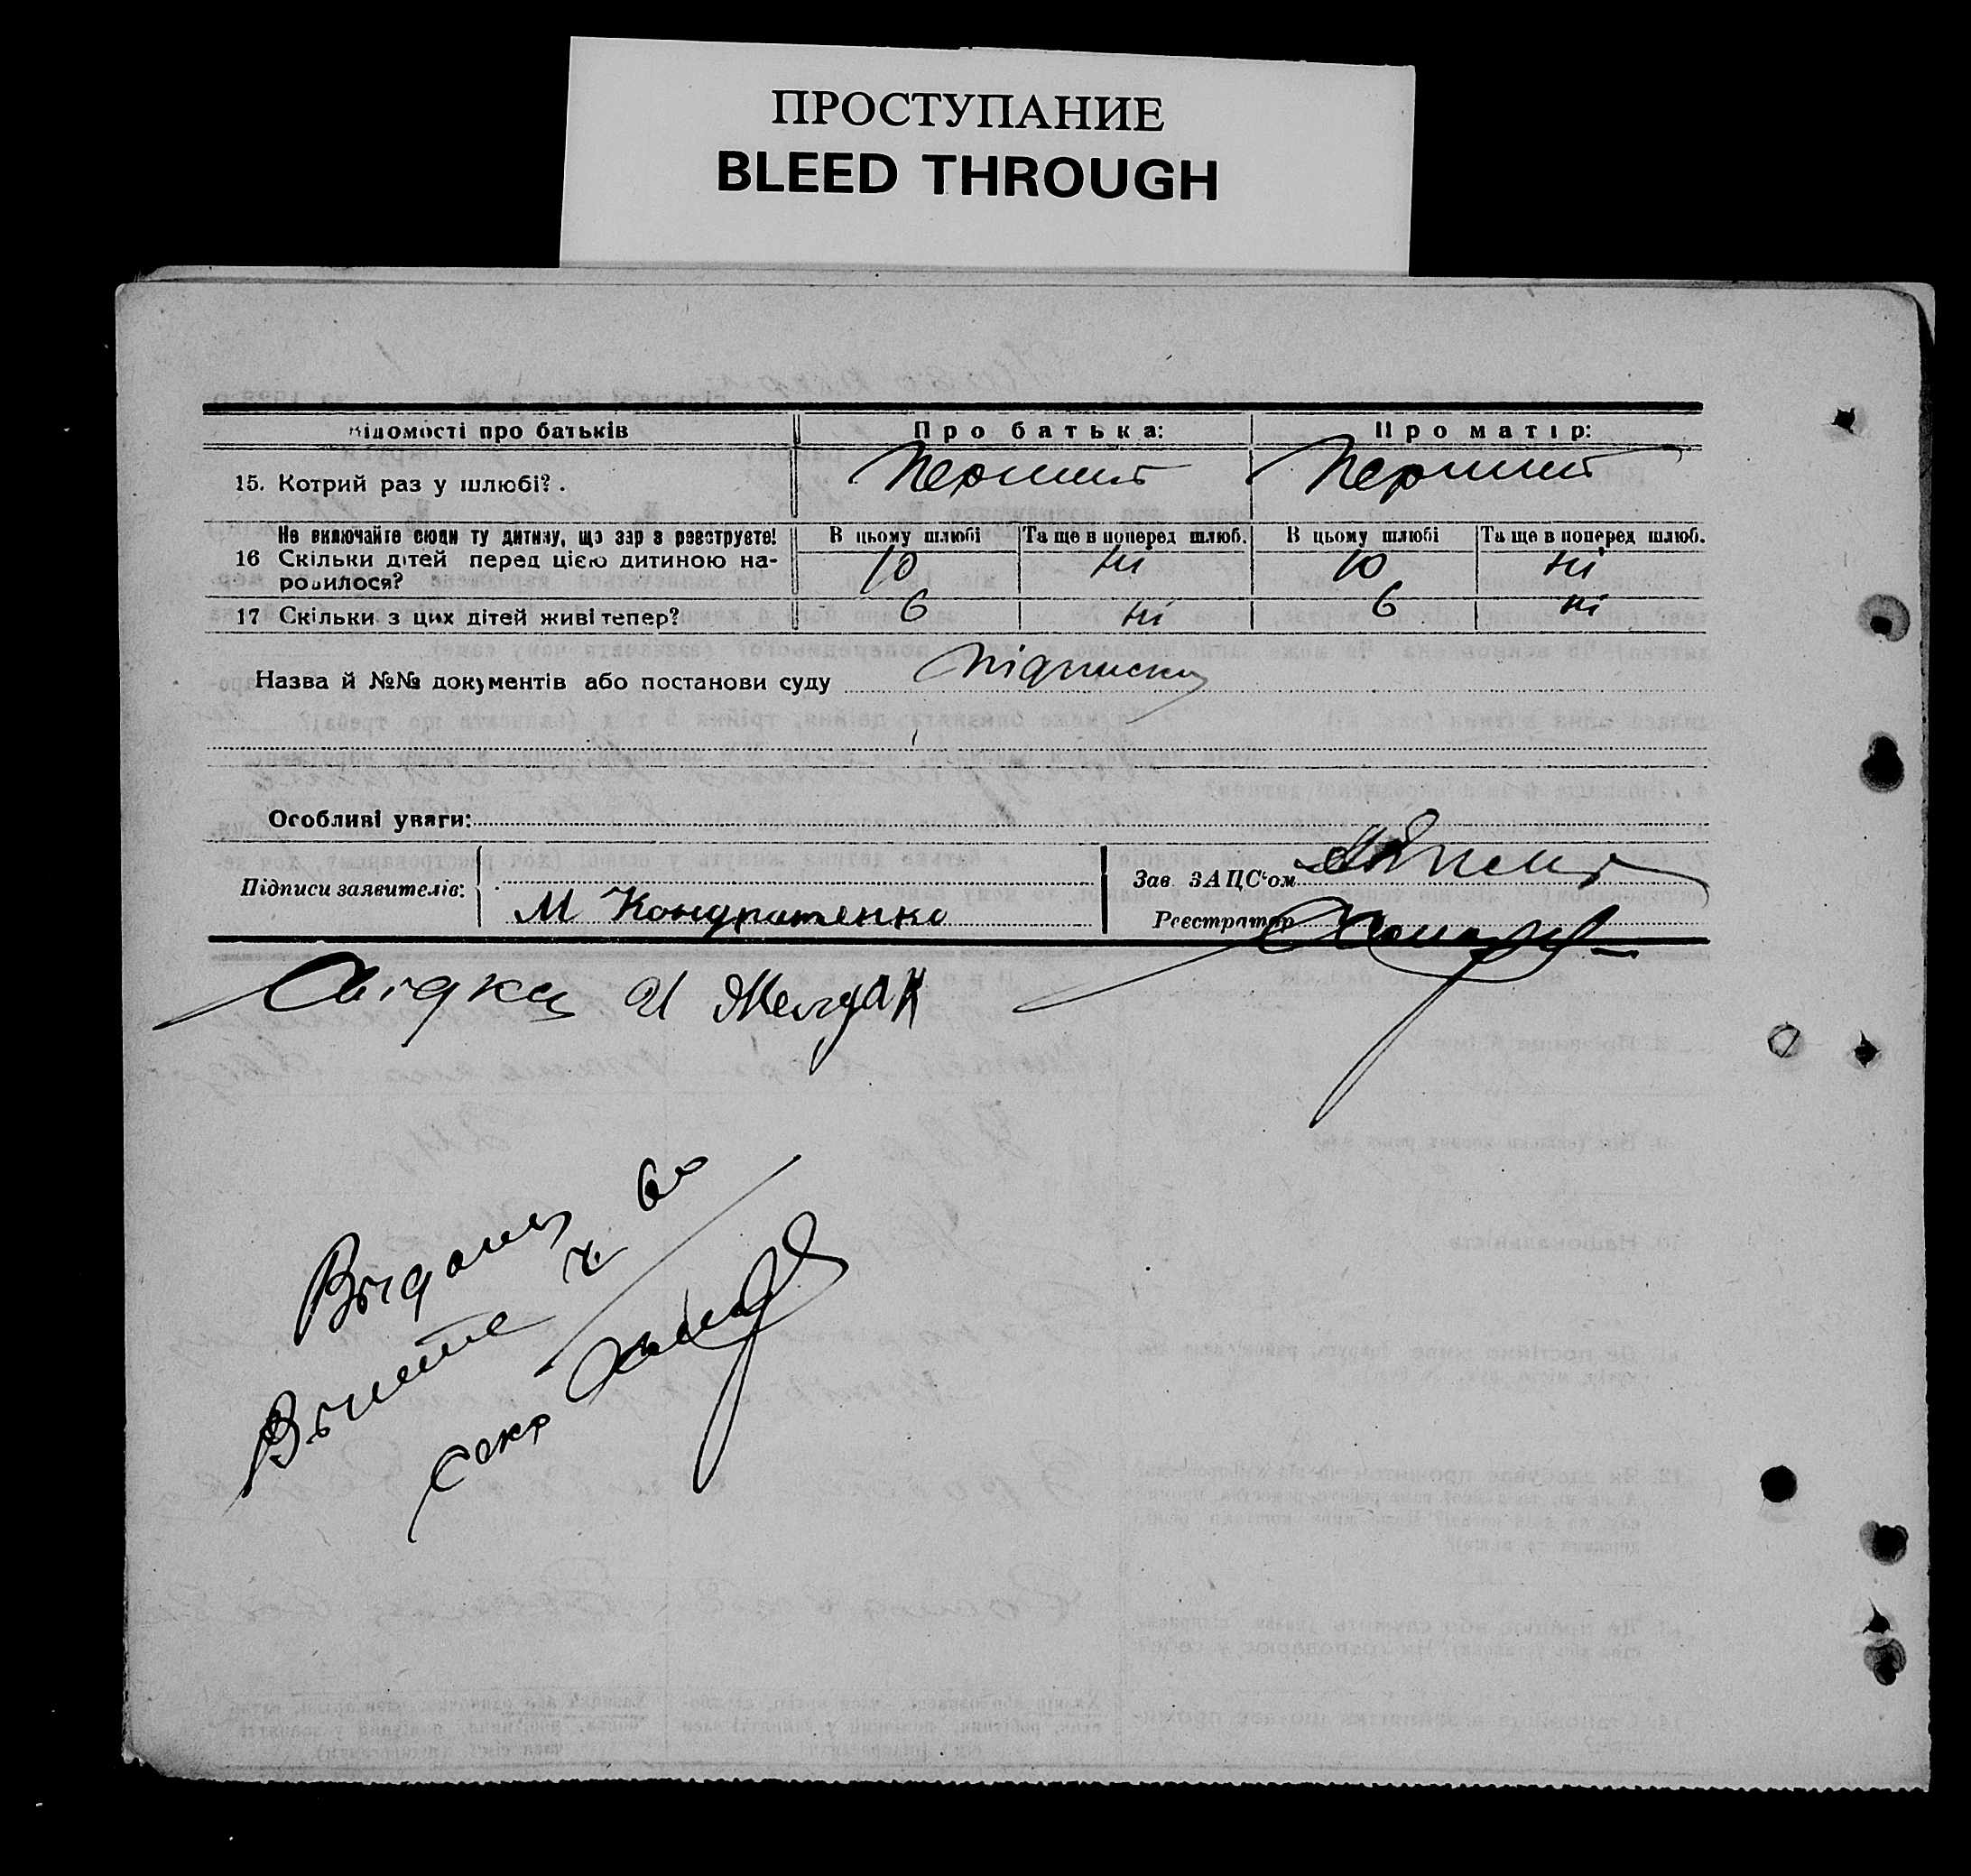 ПРОСТУПАНИЕ
BLEED THROUGH
Відомості про батьків
Про батька:
Про матір:
15. Котрий раз у шлюбі?.
Перший
Перший
Не включайте сюди ту дитину, що зараз реєструєте!
В цьому шлюбі
Та ще в поперед шлюб.
В цьому шлюбі
Та ще в поперед шлюб.
16 Скільки дітей перед цією дитиною на-
родилося?
10
ні
10
ні
17 Скільки з цих дітей живі тепер?
6
ні
6
ні
Назва й №№ документів або постанови суду
підписка
Особливі уваги:
Підписи заявителів:
М Кондратенко
Зав ЗАЦС'ом
Реєстратор
Свідки И Желдак
Видано